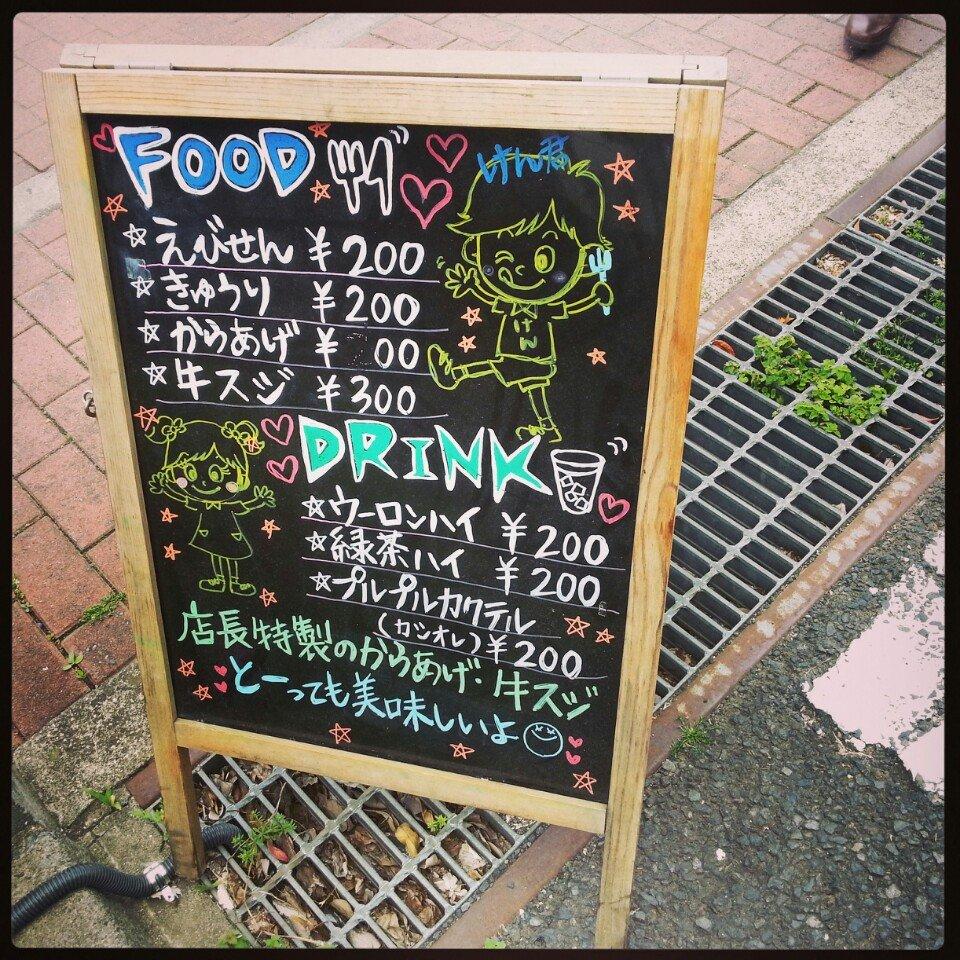 FOOD
けん君
☆えびせん ¥200
☆きゅうり ¥200
☆からあげ ¥ 00
☆牛スジ ¥300
けん
DRINK
☆ウーロンハイ ¥200
☆緑茶ハイ ¥200
☆プルプルカクテル
(カシオレ) ¥200
店長特製のからあげ・牛スジ
とーっても美味しいよ